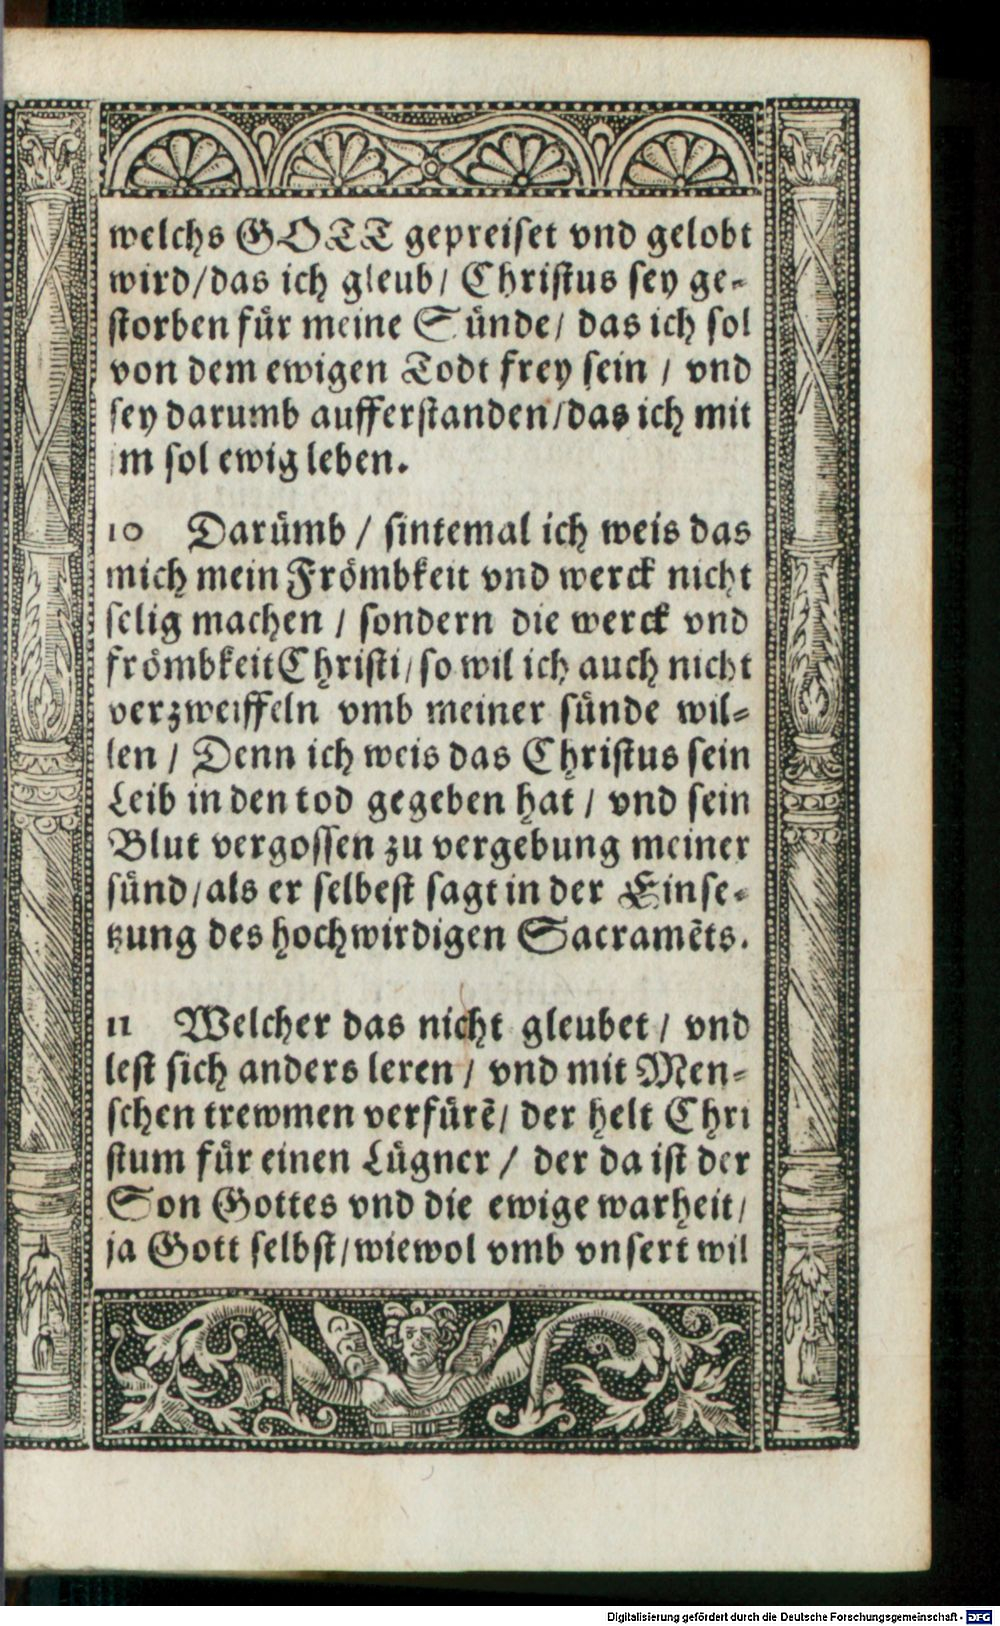 welchs GOTT gepreiset vnd gelobt
wird/das ich gleub/ Christus sey ge-
storben für meine Sünde/ das ich sol
von dem ewigen Todt frey sein / vnd
sey darumb aufferstanden/das ich mit
im sol ewig leben.
10 Darümb / sintemal ich weis das
mich mein Frömbkeit vnd werck nicht
selig machen / sondern die werck vnd
frömbkeit Christi/so wil ich auch nicht
verzweiffeln vmb meiner sünde wil-
len / Denn ich weis das Christus sein
Leib in den tod gegeben hat / vnd sein
Blut vergossen zu vergebung meiner
sünd/als er selbest sagt in der Einse-
tzung des hochwirdigen Sacramẽts.
11 Welcher das nicht gleubet / vnd
lest sich anders leren / vnd mit Men-
schen trewmen verfürẽ/ der helt Chri
stum für einen Lügner / der da ist der
Son Gottes vnd die ewige warheit/
ja Gott selbst/wiewol vmb vnsert wil
Digitalisierung gefördert durch die Deutsche Forschungsgemeinschaft - DFG